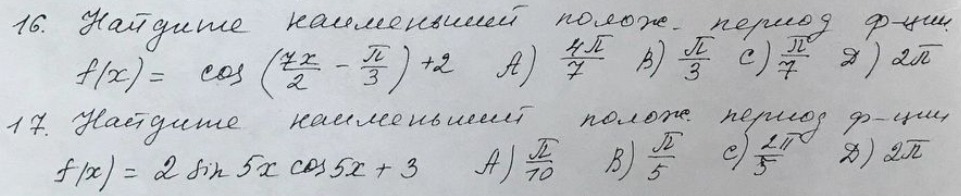 16. Найдите наименьший полож. период ф-ции
f(x) = cos (7x/2 - π/3) + 2 A) 4π/7 B) π/3 C) π/7 D) 2π
17. Найдите наименьший полож. период ф-ции
f(x) = 2 sin 5x cos 5x + 3 A) π/10 B) π/5 C) 2π/5 D) 2π